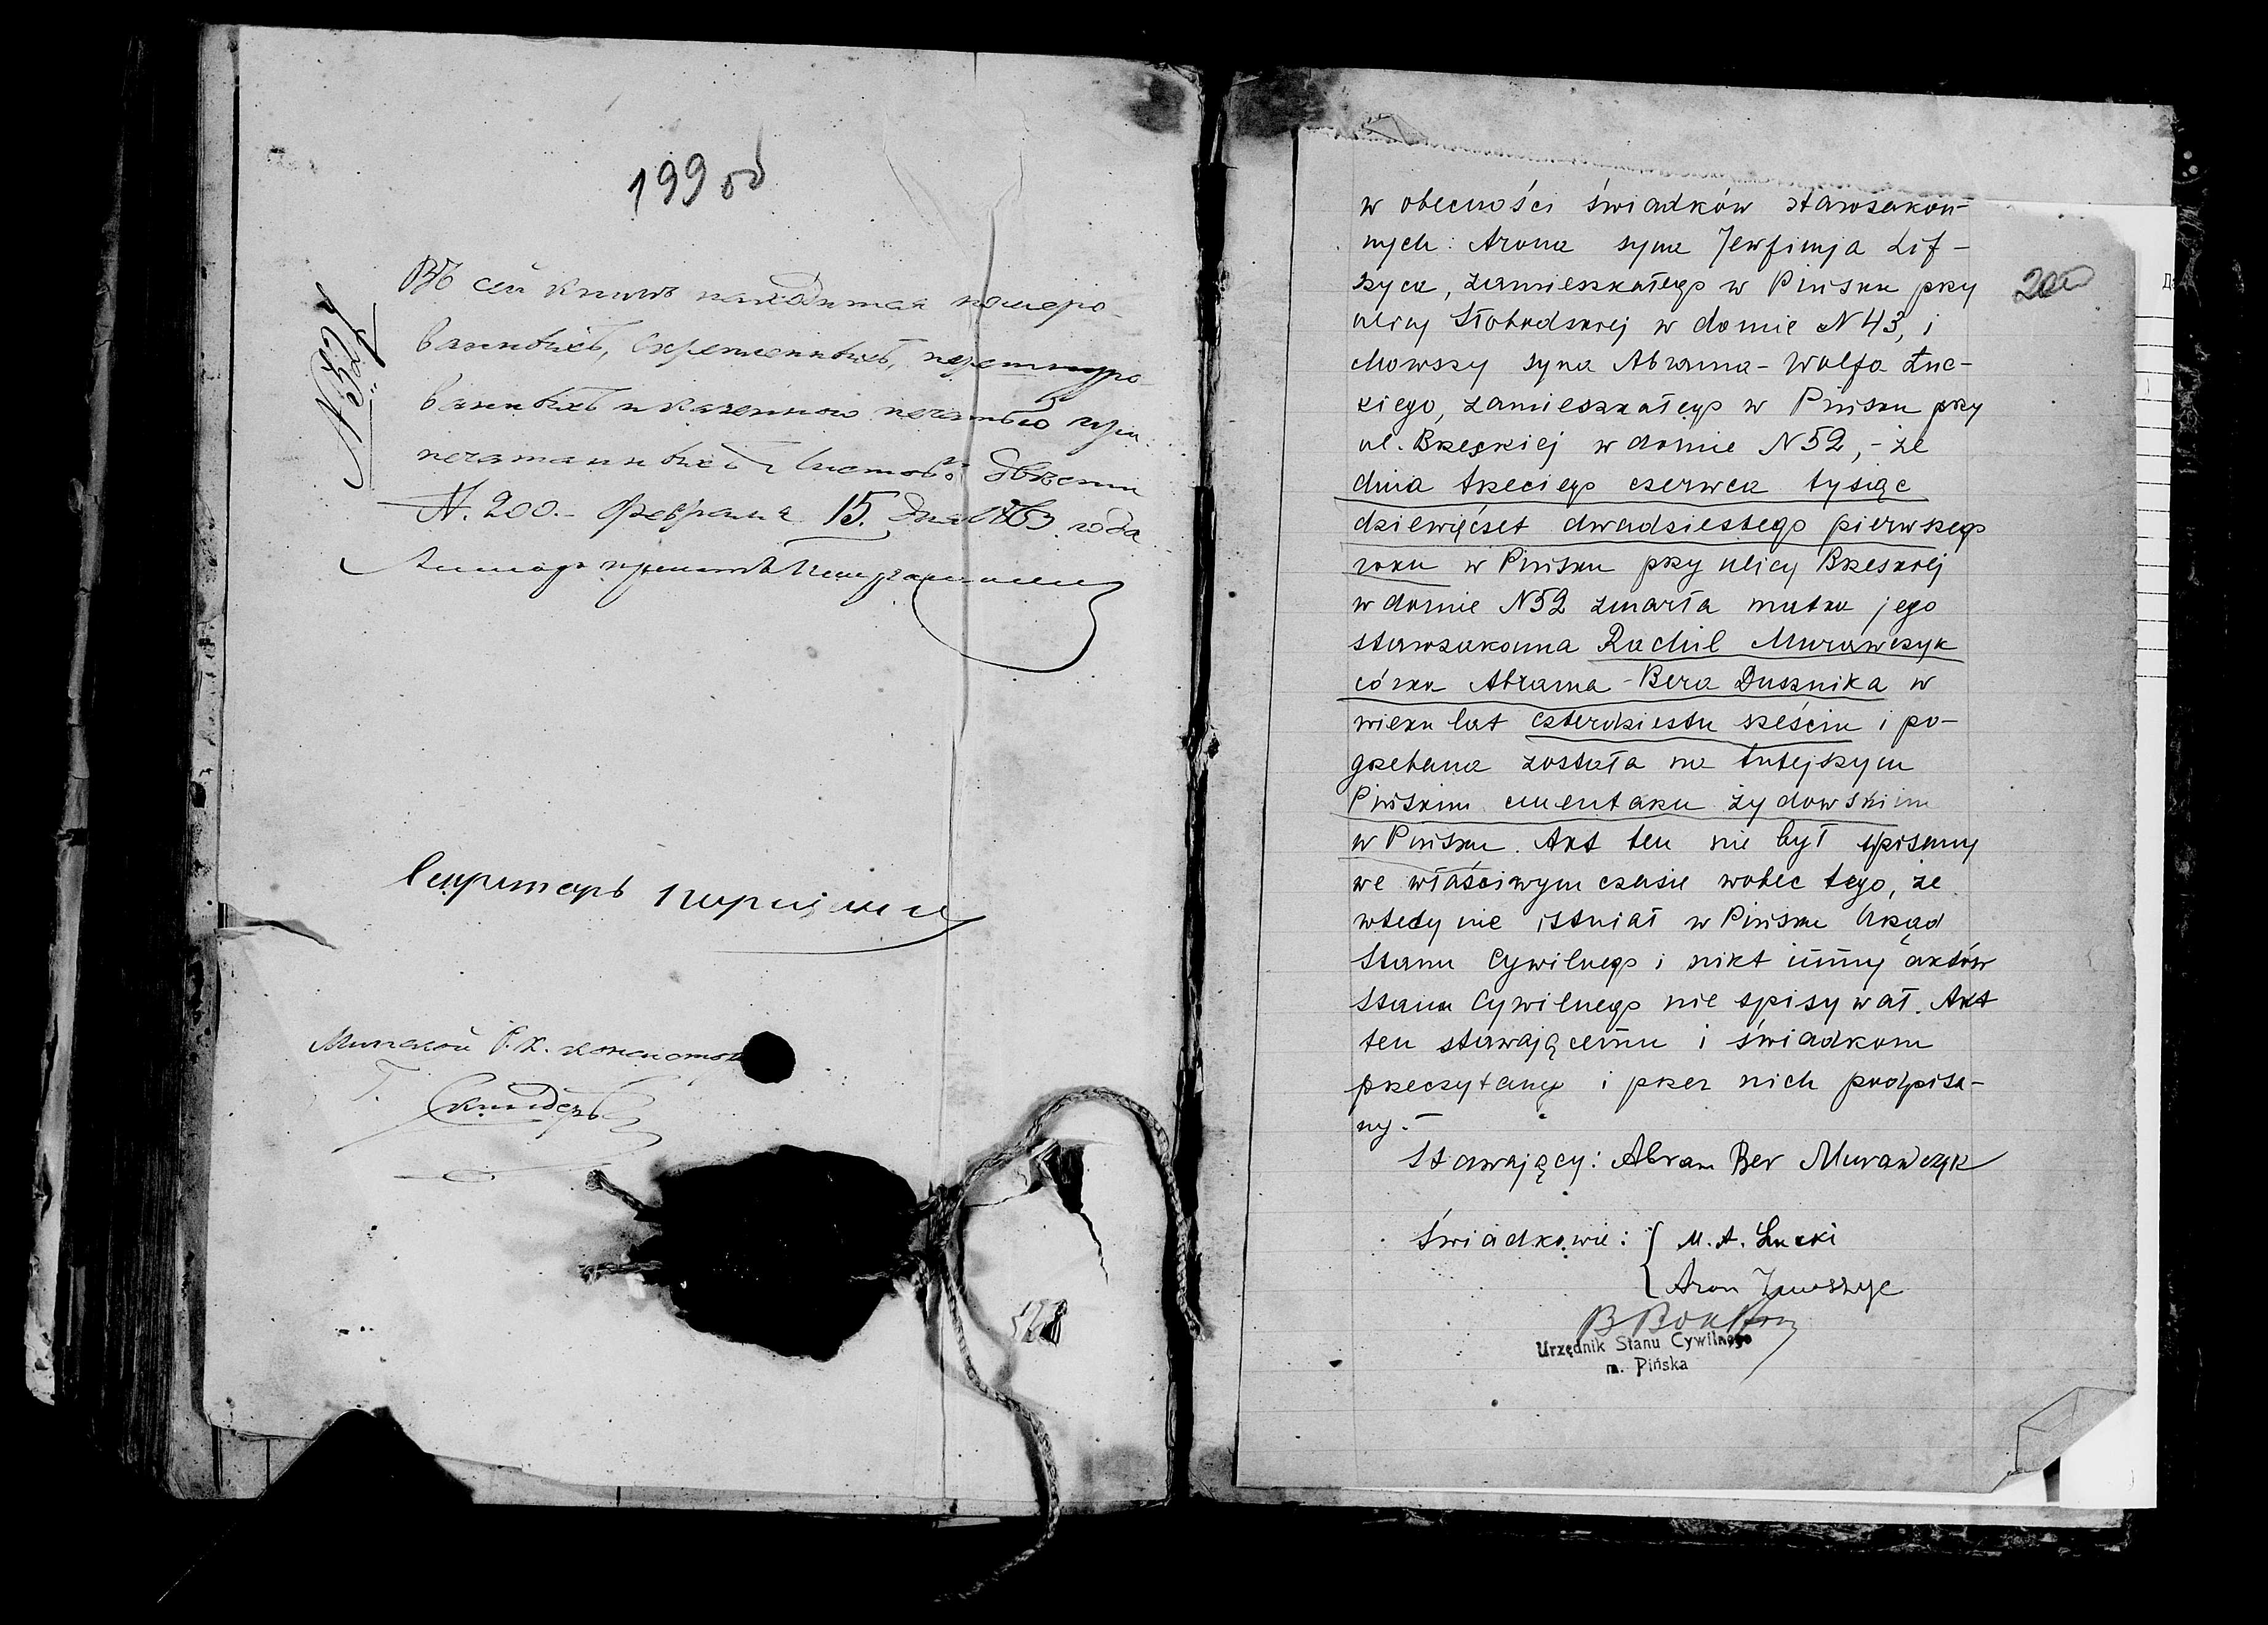 199 об
Въ сей книгѣ находится нумеро-
ванныхъ, скрепленныхъ, перешнуро-
ванныхъ и казенною печатью при-
печатанныхъ листовъ двѣсти
N. 200.- Февраля 15. дня 1863 года
Секретарь
Минской
w obecności świadków starozakon-
nych: Arona syna Jewfimja Lif-
szyca, zamieszkałego w Pińsku przy
ulicy Słobodskiej w domie N 43, i
Mowszy syna Abrama-Wolfa Łuc-
kiego, zamieszkałego w Pińsku przy
ul. Brzeskiej w domie N 52,- że
dnia trzeciego czerwca tysiąc
dziewięćset dwadziestego pierwszego
roku w Pińsku przy ulicy Brzeskiej
w domie N 52 zmarła matka jego
starozakonna Rachil Murawczyk
córka Abrama-Bera Dusznika w
wieku lat czterdziestu sześciu i po-
grzebana została na tutejszym
Pińskim cmentarzu żydowskim
w Pińsku. Akt ten nie był spisany
we właściwym czasie wobec tego, że
wtedy nie istniał w Pińsku Urząd
Stanu Cywilnego i nikt inny aktów
Stanu Cywilnego nie spisywał. Akt
ten stawającemu i świadkom
przeczytany i przez nich podpisa-
ny.-
Stawający: Abram Ber Murawczyk
Świadkowie: M. A. Łucki
Aron
Urzędnik Stanu Cywilnego
m. Pińska
200